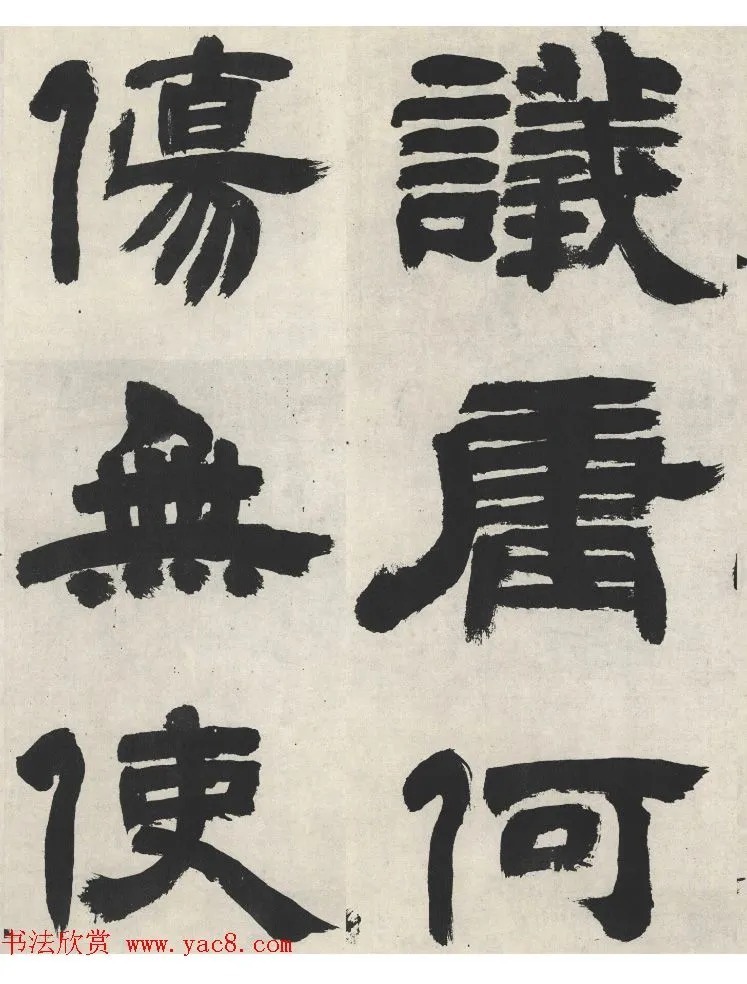 議庸何
傷無使
书法欣赏 www.yac8.com